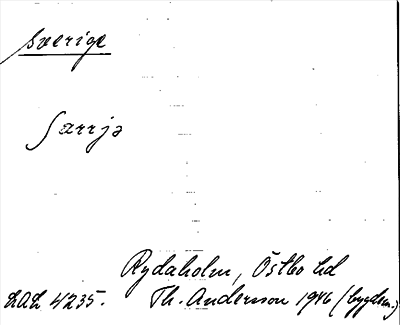 Sverige
Sarrjə
Rydaholm, Östbo hd
LAL 4235. Th. Andersson 1946 (bygdem.)